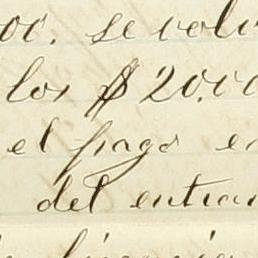 00. se volv
los $20.00
el pago en
del entran